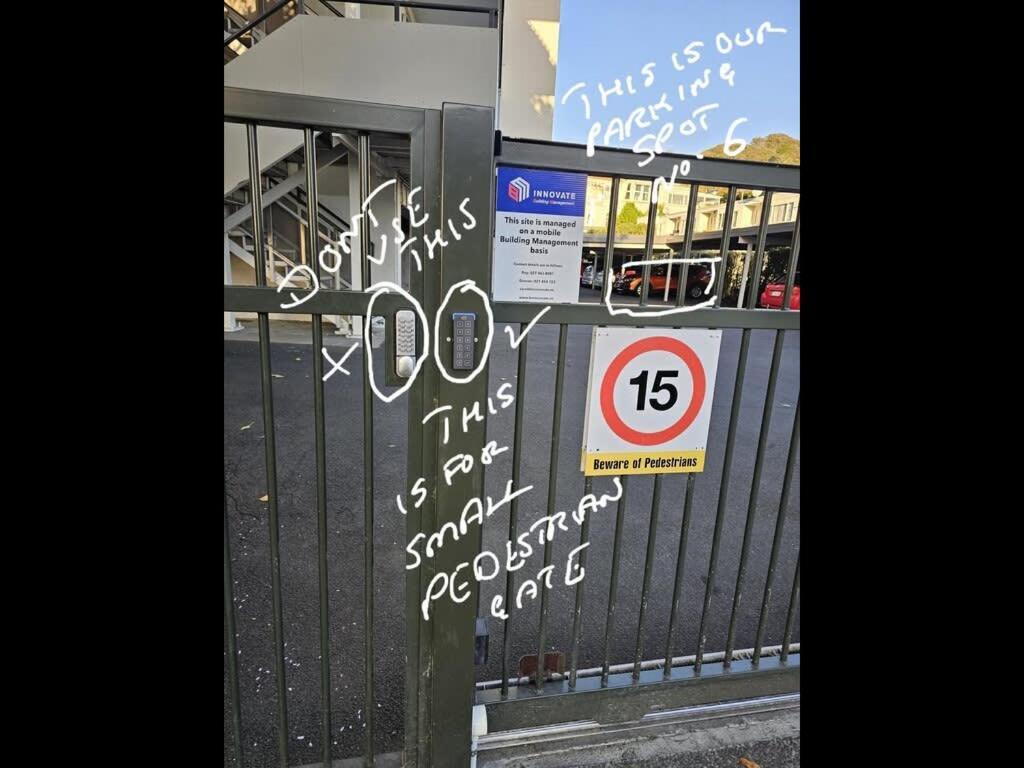 THIS IS OUR
PARKING
SPOT
No. 6
DONT
USE
THIS
X
THIS
IS FOR
SMALL
PEDESTRIAN
GATE
INNOVATE
Building Management
This site is managed
on a mobile
Building Management
basis
15
Beware of Pedestrians